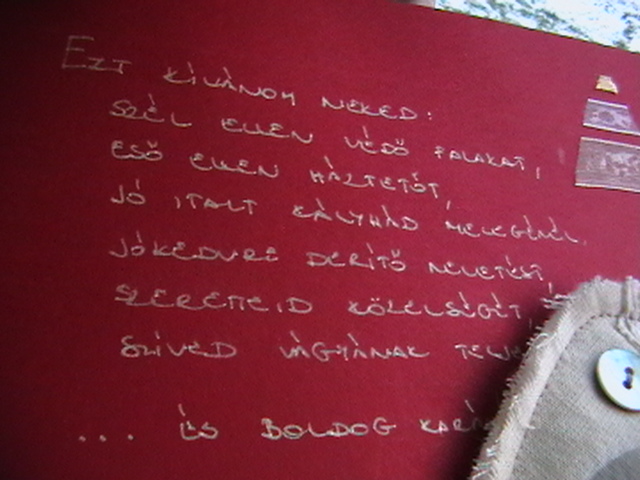 EZT KÍVÁNOM NEKED:
SZÉL ELLEN VÉDŐ FALAKAT,
ESŐ ELLEN HÁZTETŐT,
JÓ ITALT KÁLYHÁD MELEGÉNÉL,
JÓKEDVRE DERÍTŐ NEVETÉST,
SZERETTEID KÖZELSÉGÉT,
SZÍVED VÁGYÁNAK
... ÉS BOLDOG